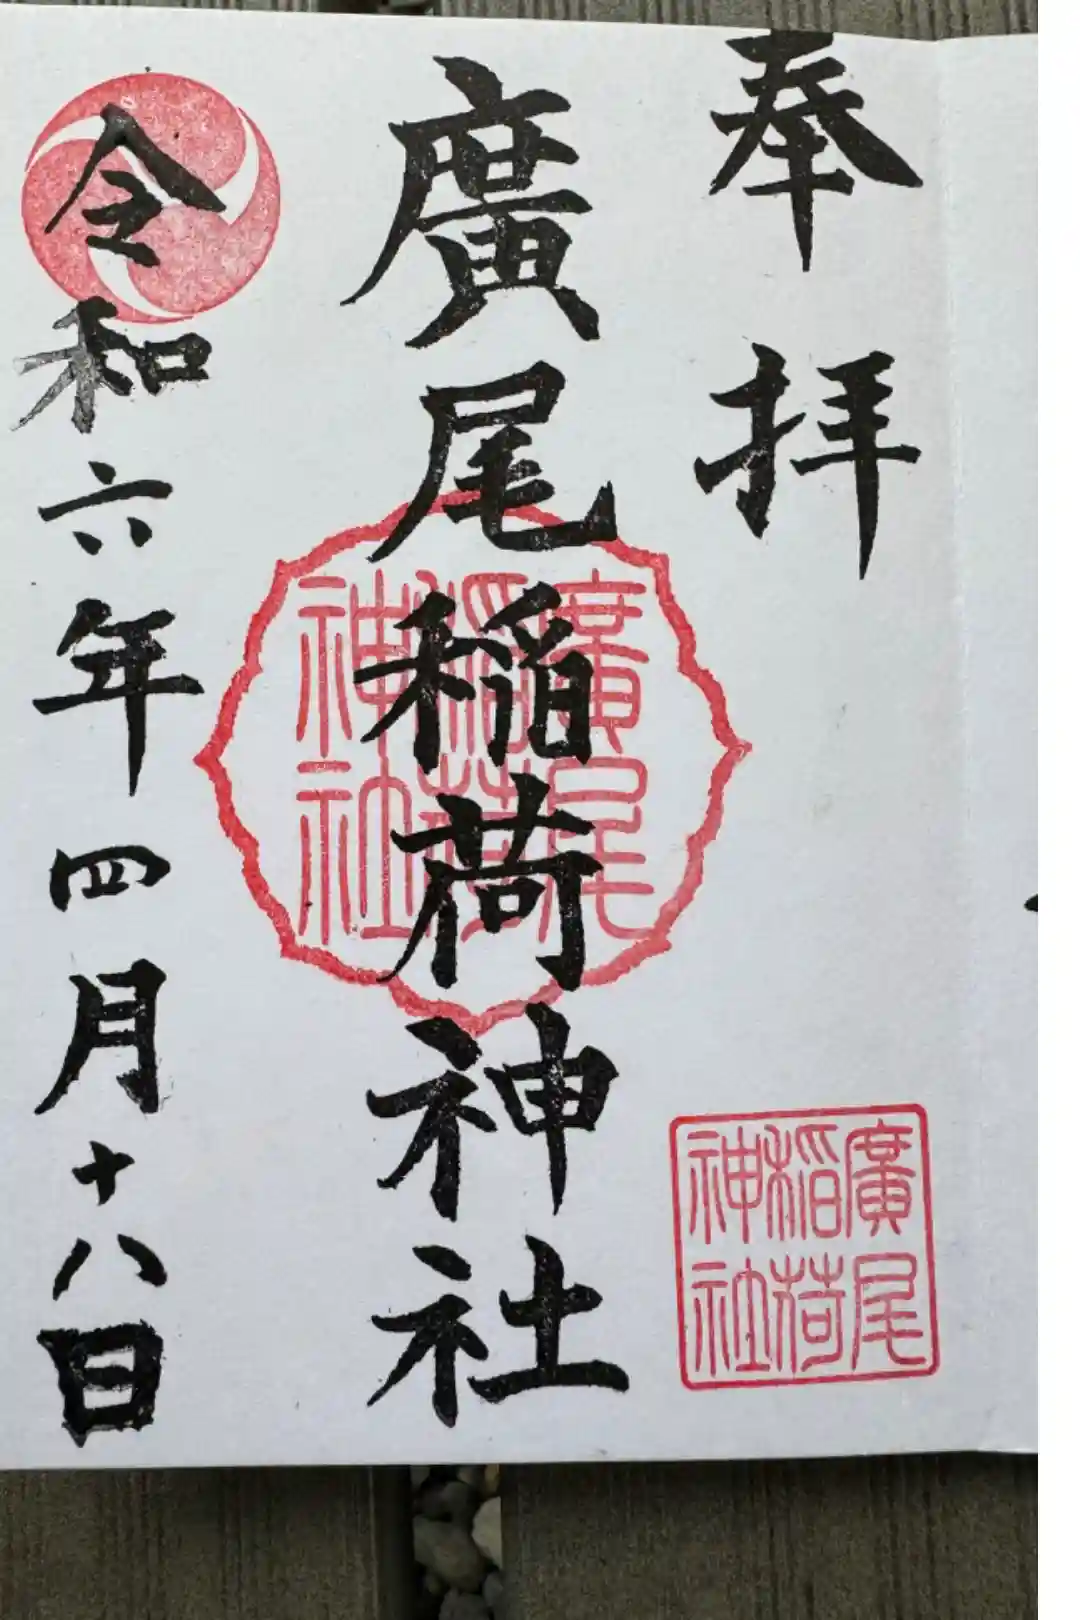 奉拝
廣尾稲荷神社
廣尾
稲荷
神社
廣尾
稲荷
神社
令和六年四月十八日